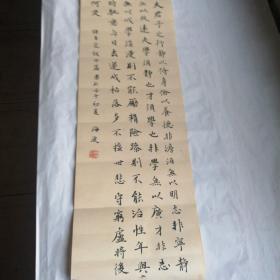 夫君子之行靜以修身儉以養德非澹泊無以明志非寧靜
無以致遠夫學須靜也才須學也非學無以廣才非志
無以成學淫漫則不能勵精險躁則不能治性年與
時馳意與日去遂成枯落多不接世悲守窮廬將復
何及 諸葛亮誡子篇 書於壬午初夏 海波